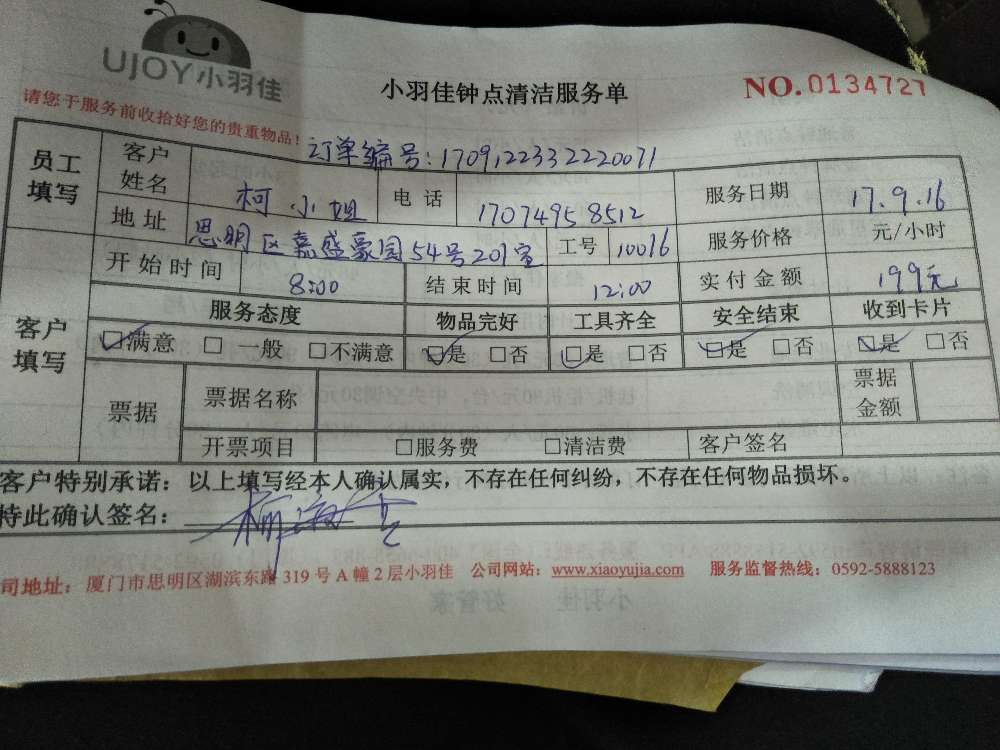 UJOY小羽佳
小羽佳钟点清洁服务单
NO.0134727
请您于服务前收拾好您的贵重物品!
订单编号:1709122332220071
员工填写 客户姓名 柯小姐 电话 17074958512 服务日期 17.9.16
地址 思明区嘉盛豪园54号201室 工号 10016 服务价格 元/小时
客户填写 开始时间 8:00 结束时间 12:00 实付金额 199元
服务态度 物品完好 工具齐全 安全结束 收到卡片
☑满意 □一般 □不满意 ☑是 □否 ☑是 □否 ☑是 □否 ☑是 □否
票据 票据名称 票据金额
开票项目 □服务费 □清洁费 客户签名
客户特别承诺:以上填写经本人确认属实,不存在任何纠纷,不存在任何物品损坏。
特此确认签名:
司地址:厦门市思明区湖滨东路 319 号 A 幢 2 层小羽佳 公司网站:www.xiaoyujia.com 服务监督热线:0592-5888123